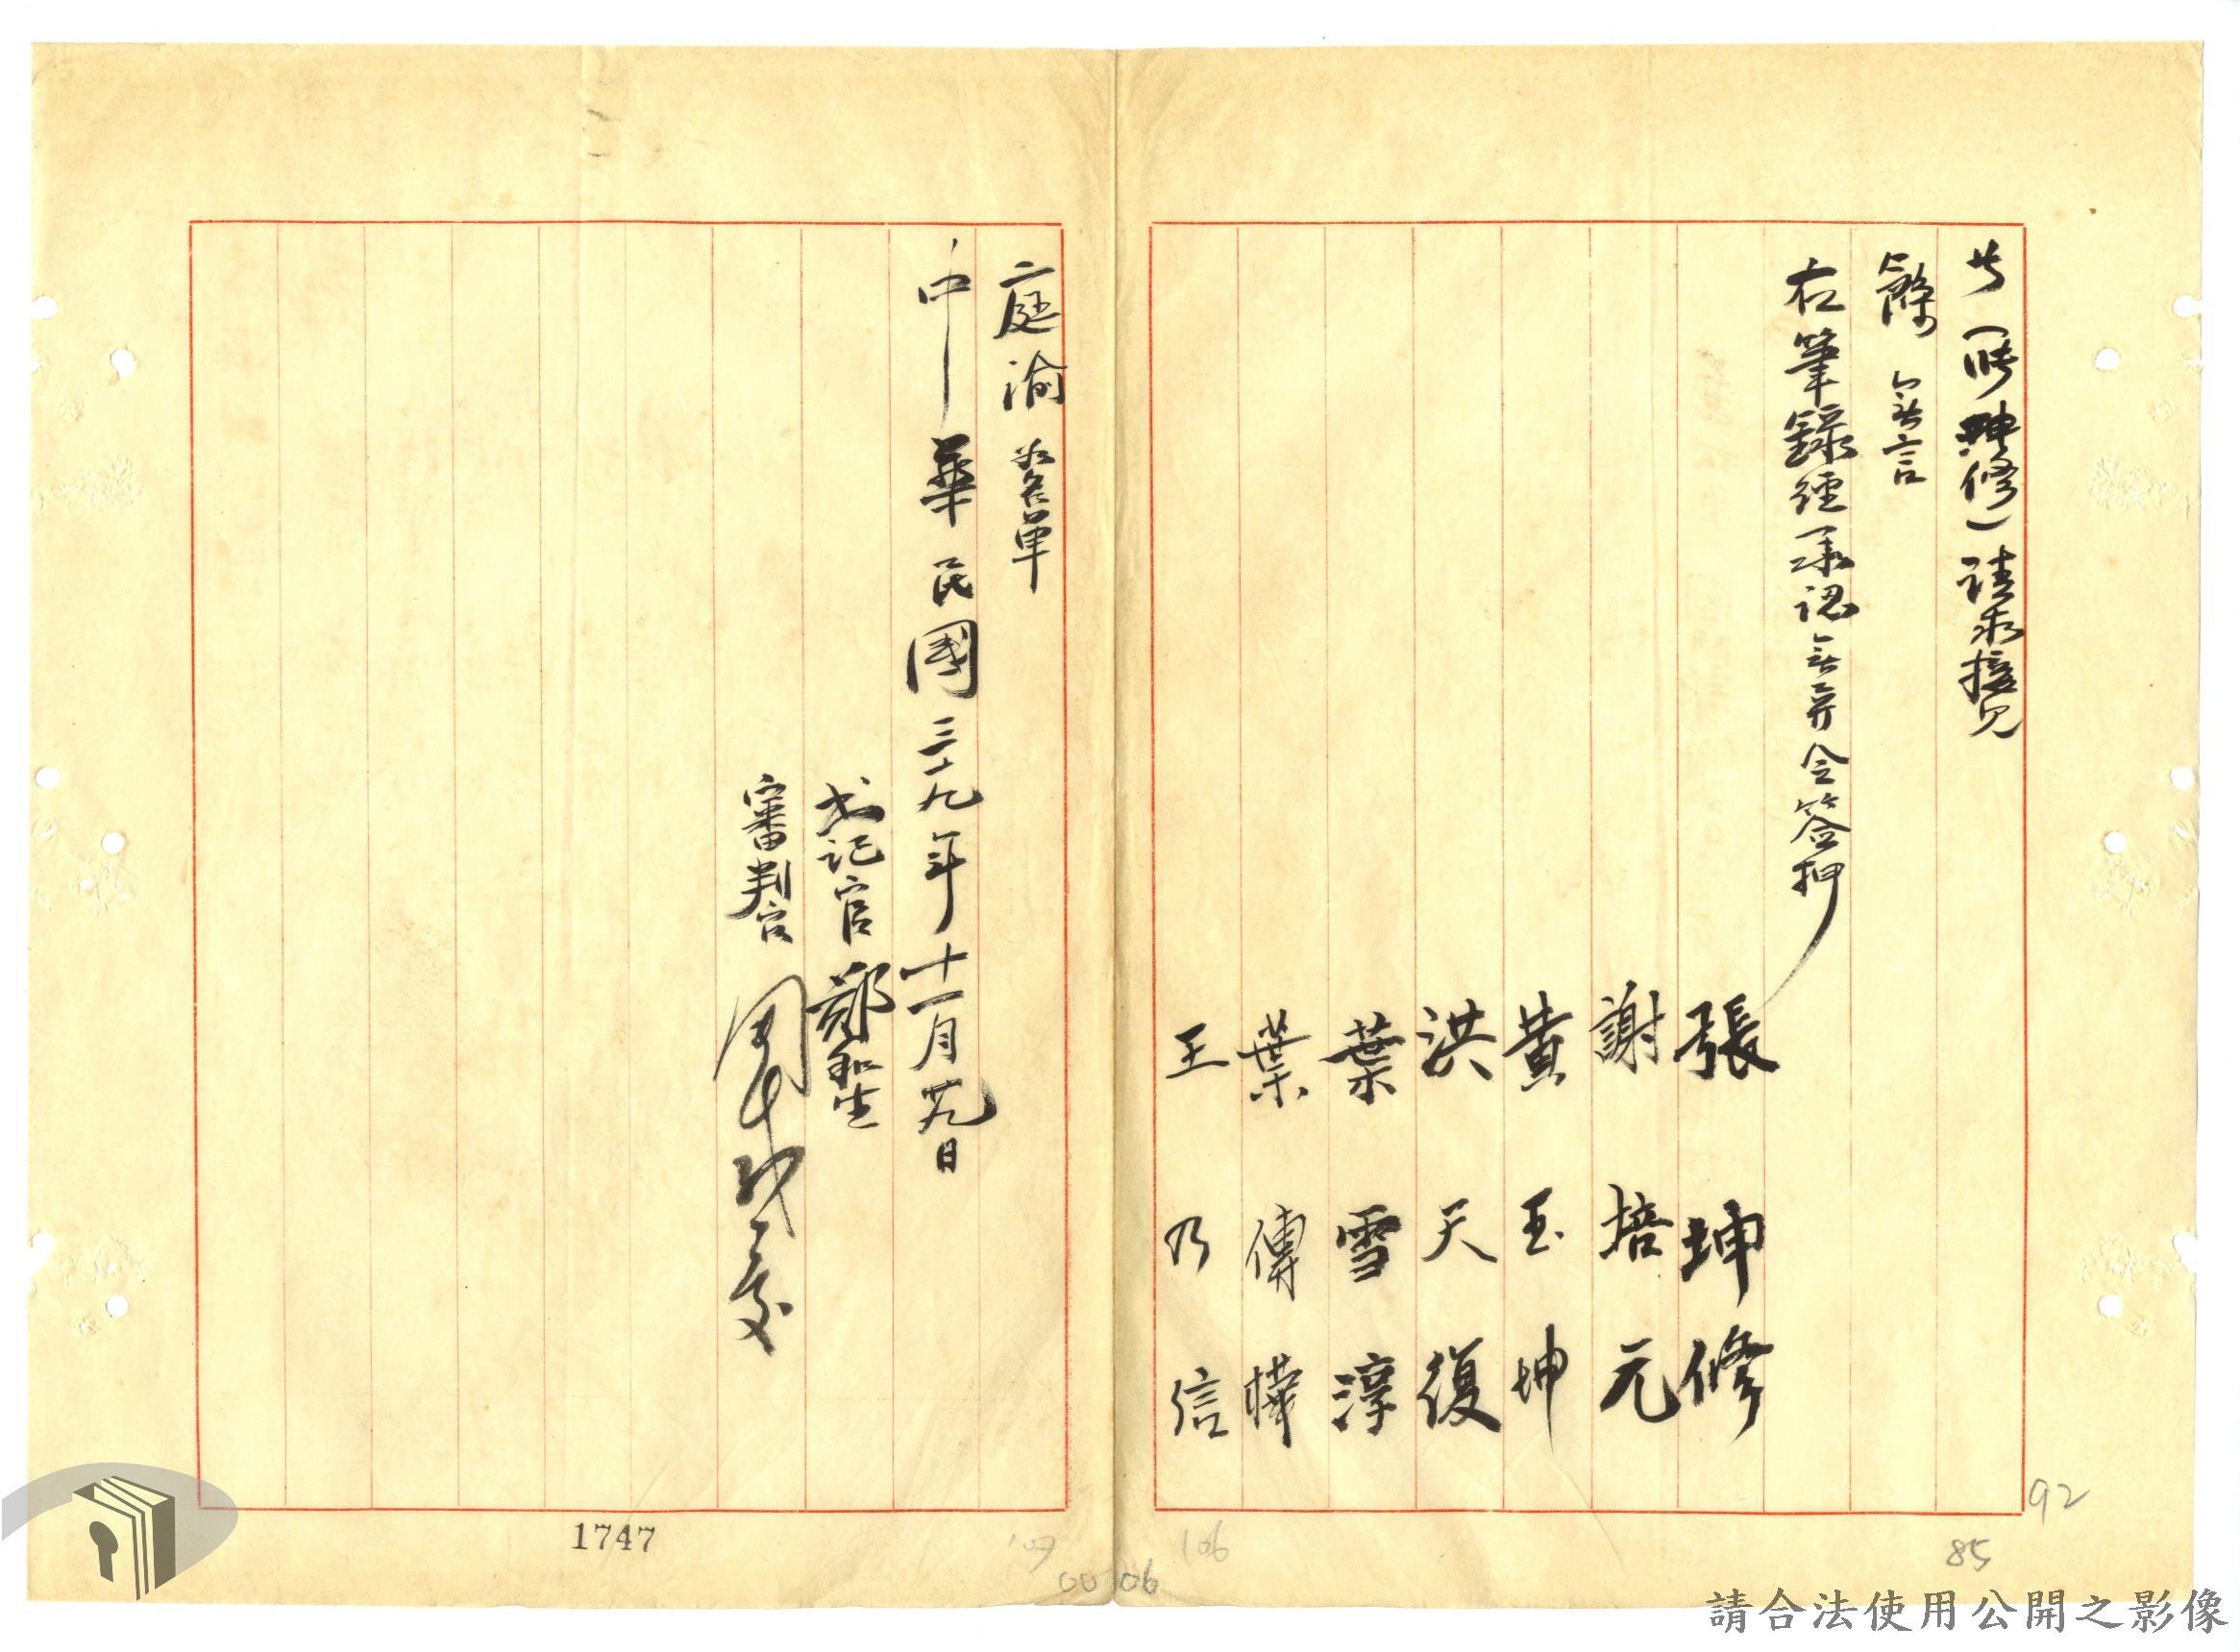 答（張坤修）請求接見
餘無言
右筆錄經承認無異令簽押
張坤修
謝培元
黃玉坤
洪天復
葉雪淳
葉傳樺
王乃信
庭諭 名單
中華民國三十九年十一月廿九日
書記官 鄭聖
審判官 周
92
85
106
107
00106
1747
請合法使用公開之影像